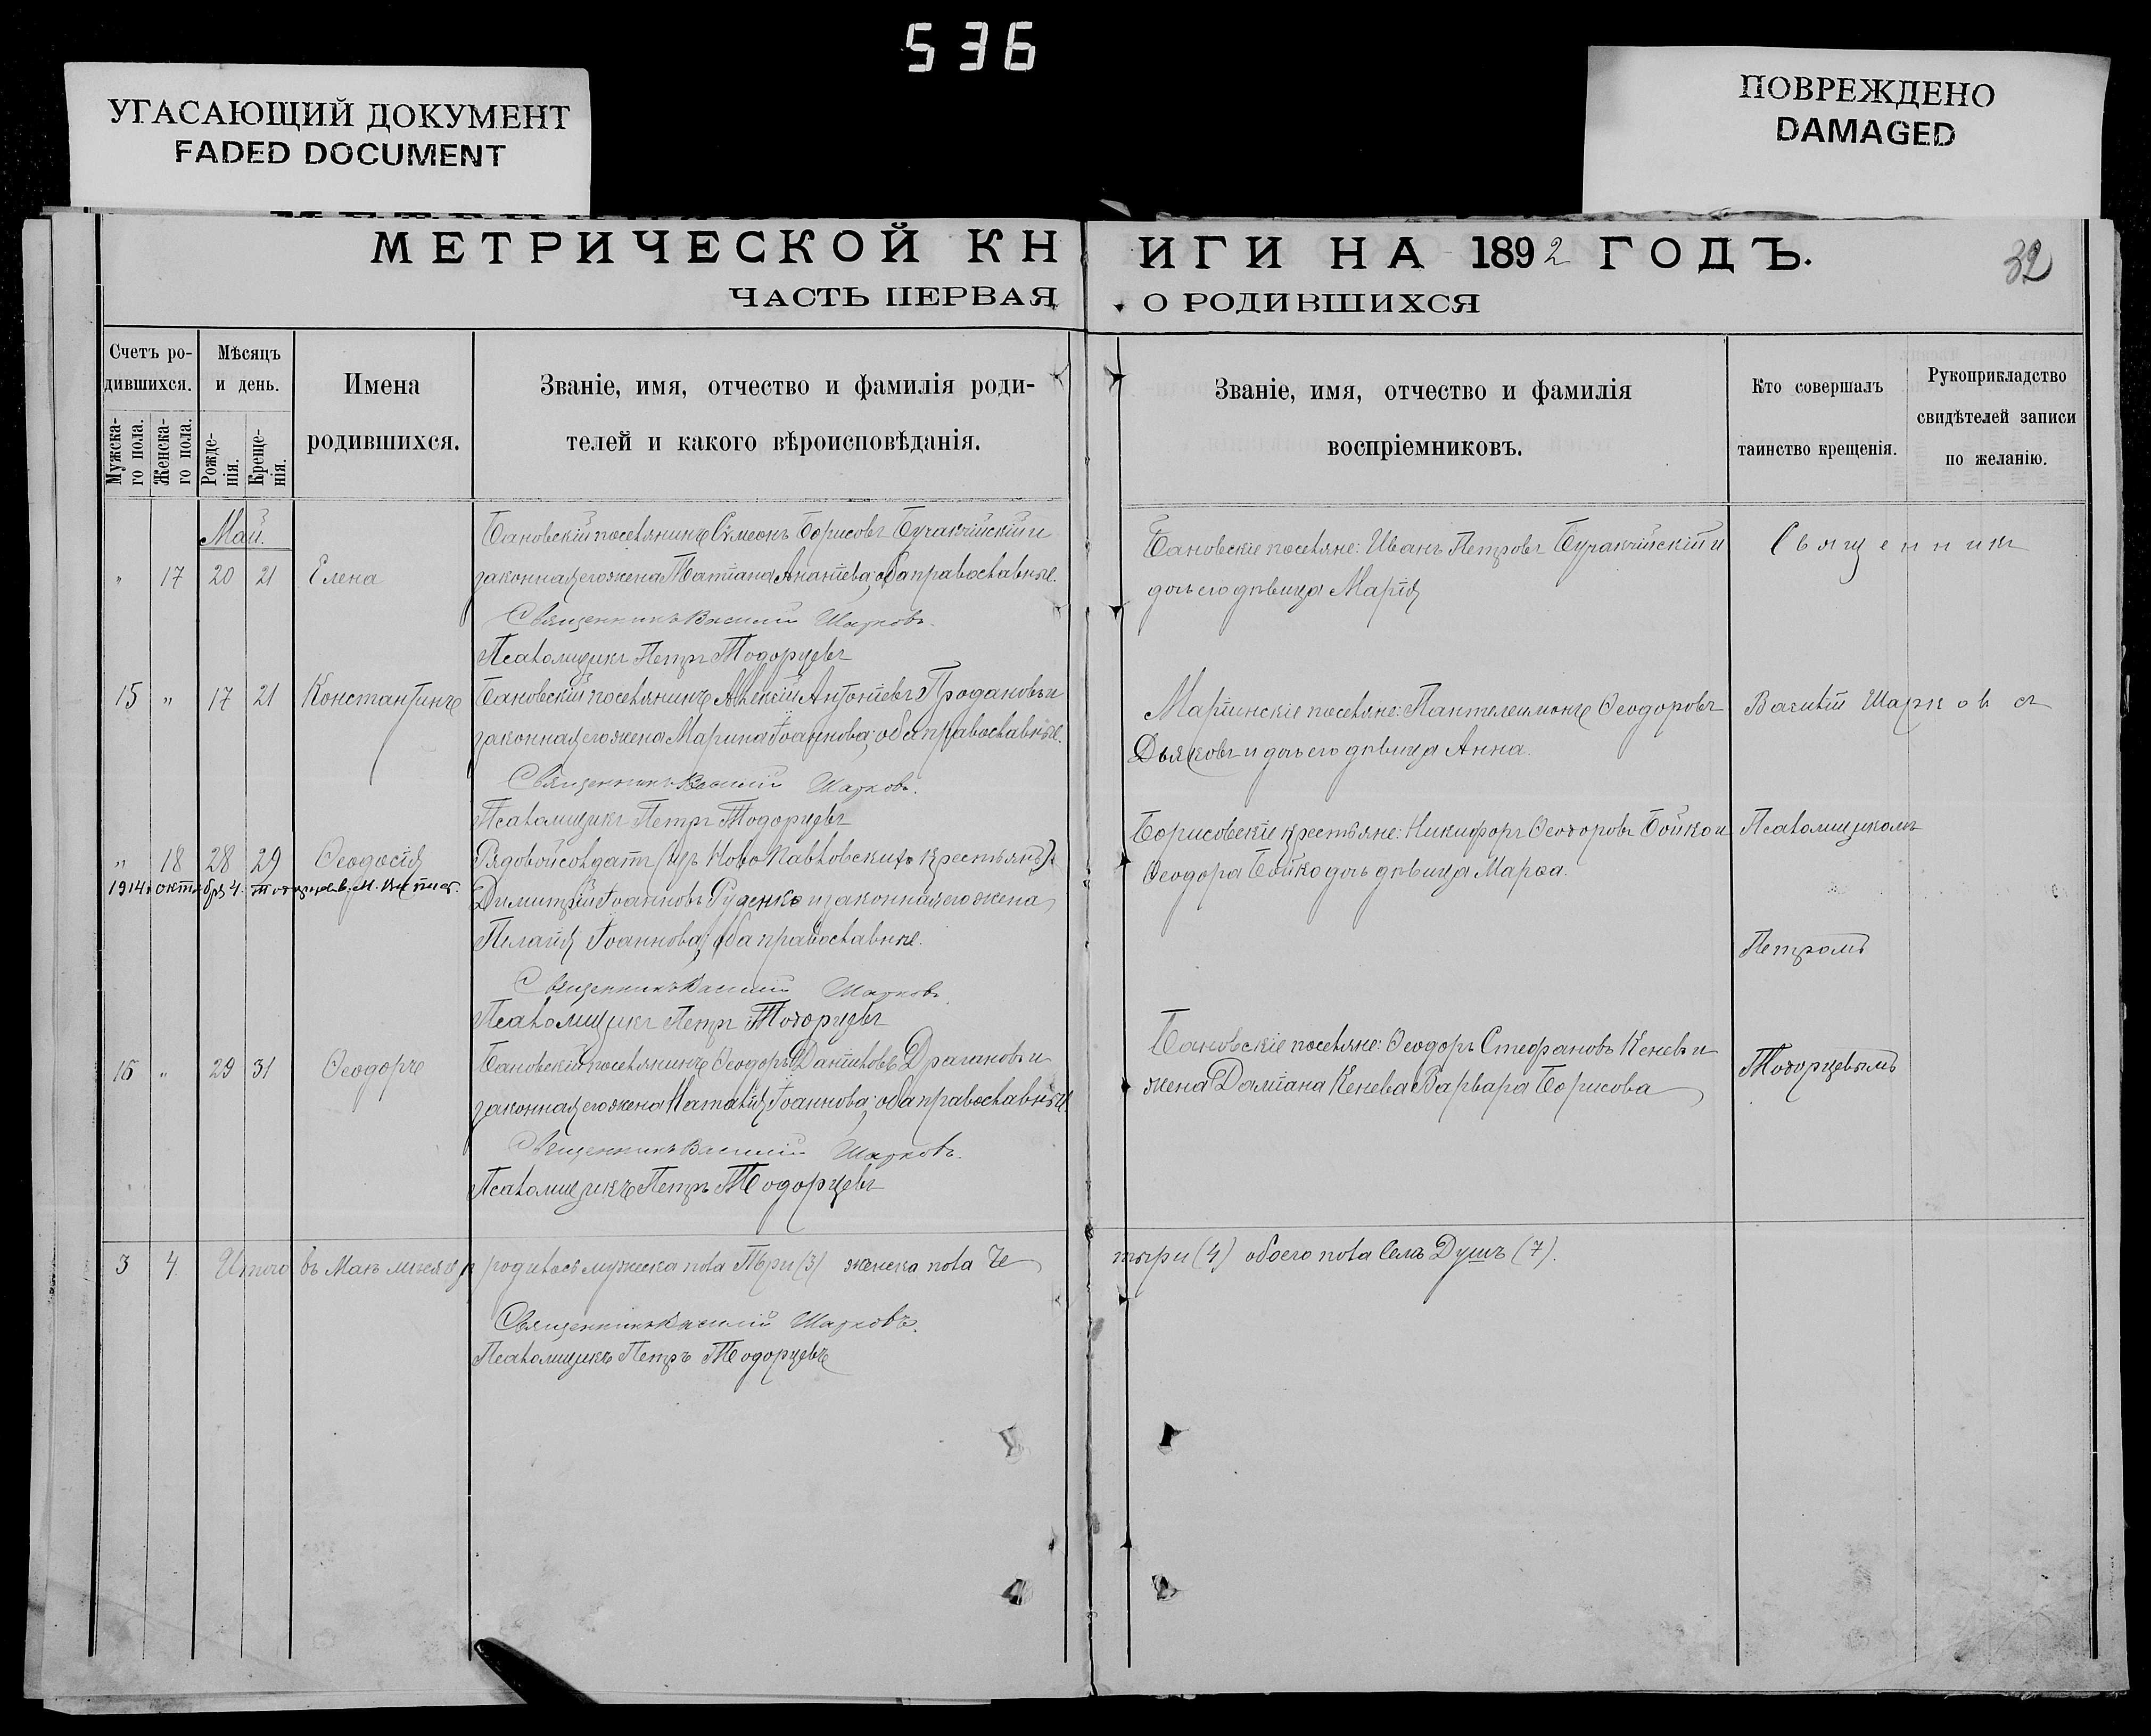 536
УГАСАЮЩИЙ ДОКУМЕНТ
FADED DOCUMENT
ПОВРЕЖДЕНО
DAMAGED
МЕТРИЧЕСКОЙ КНИГИ НА 1892 ГОДЪ.
32
ЧАСТЬ ПЕРВАЯ О РОДИВШИХСЯ
Счетъ ро-
дившихся.
Мужска-
го пола.
Женска-
го пола.
Мѣсяцъ
и день.
Рожде-
нія.
Креще-
нія.
Имена
родившихся.
Званіе, имя, отчество и фамилія роди-
телей и какого вѣроисповѣданія.
Званіе, имя, отчество и фамилія
воспріемниковъ.
Кто совершалъ
таинство крещенія.
Рукоприкладство
свидѣтелей записи
по желанію.
Май.
" 17 20 21 Елена
Бановскій поселянинъ Симеонъ Борисовъ Бучакчійскій и
законная его жена Татіана Ананіева; оба православные.
Священникъ Василій Шарковъ.
Псаломщикъ Петръ Тодорцевъ
Бановскіе поселяне: Иванъ Петровъ Бучакчійскій и
дочь его дѣвица Марія
Священникъ
15 " 17 21 Константинъ
Бановскій поселянинъ Алексій Антоніевъ Продановъ и
законная его жена Марина Іоаннова; оба православные.
Священникъ Василій Шарковъ.
Псаломщикъ Петръ Тодорцевъ
Маріинскіе поселяне: Пантелеимонъ Ѳеодоровъ
Дьяковъ и дочь его дѣвица Анна.
Василій Шарковъ съ
" 18 28 29 Ѳеодосія
1914 г. октября 4.
Рядовой солдатъ (изъ Ново Павловскихъ крестьянъ)
Димитрій Іоанновъ Руденко и законная его жена
Пелагія Іоаннова; оба православные.
Священникъ Василій Шарковъ.
Псаломщикъ Петръ Тодорцевъ
Борисовскіе крестьяне: Никифоръ Ѳеодоровъ Бойко и
Ѳеодора Бойко дочь дѣвица Марѳа.
Псаломщикомъ
Петромъ
16 " 29 31 Ѳеодоръ
Бановскій поселянинъ Ѳеодоръ Даніиловъ Драгановъ и
законная его жена Наталія Іоаннова; оба православные.
Священникъ Василій Шарковъ.
Псаломщикъ Петръ Тодорцевъ
Бановскіе поселяне: Ѳеодоръ Стефановъ Кеневъ и
жена Даміана Кенева Варвара Борисова
Тодорцевымъ
3 4 Итого въ Маѣ мѣсяцѣ родилось мужеска пола Три (3) женска пола Четыри (4) обоего пола Семь Душъ (7).
Священникъ Василій Шарковъ.
Псаломщикъ Петръ Тодорцевъ